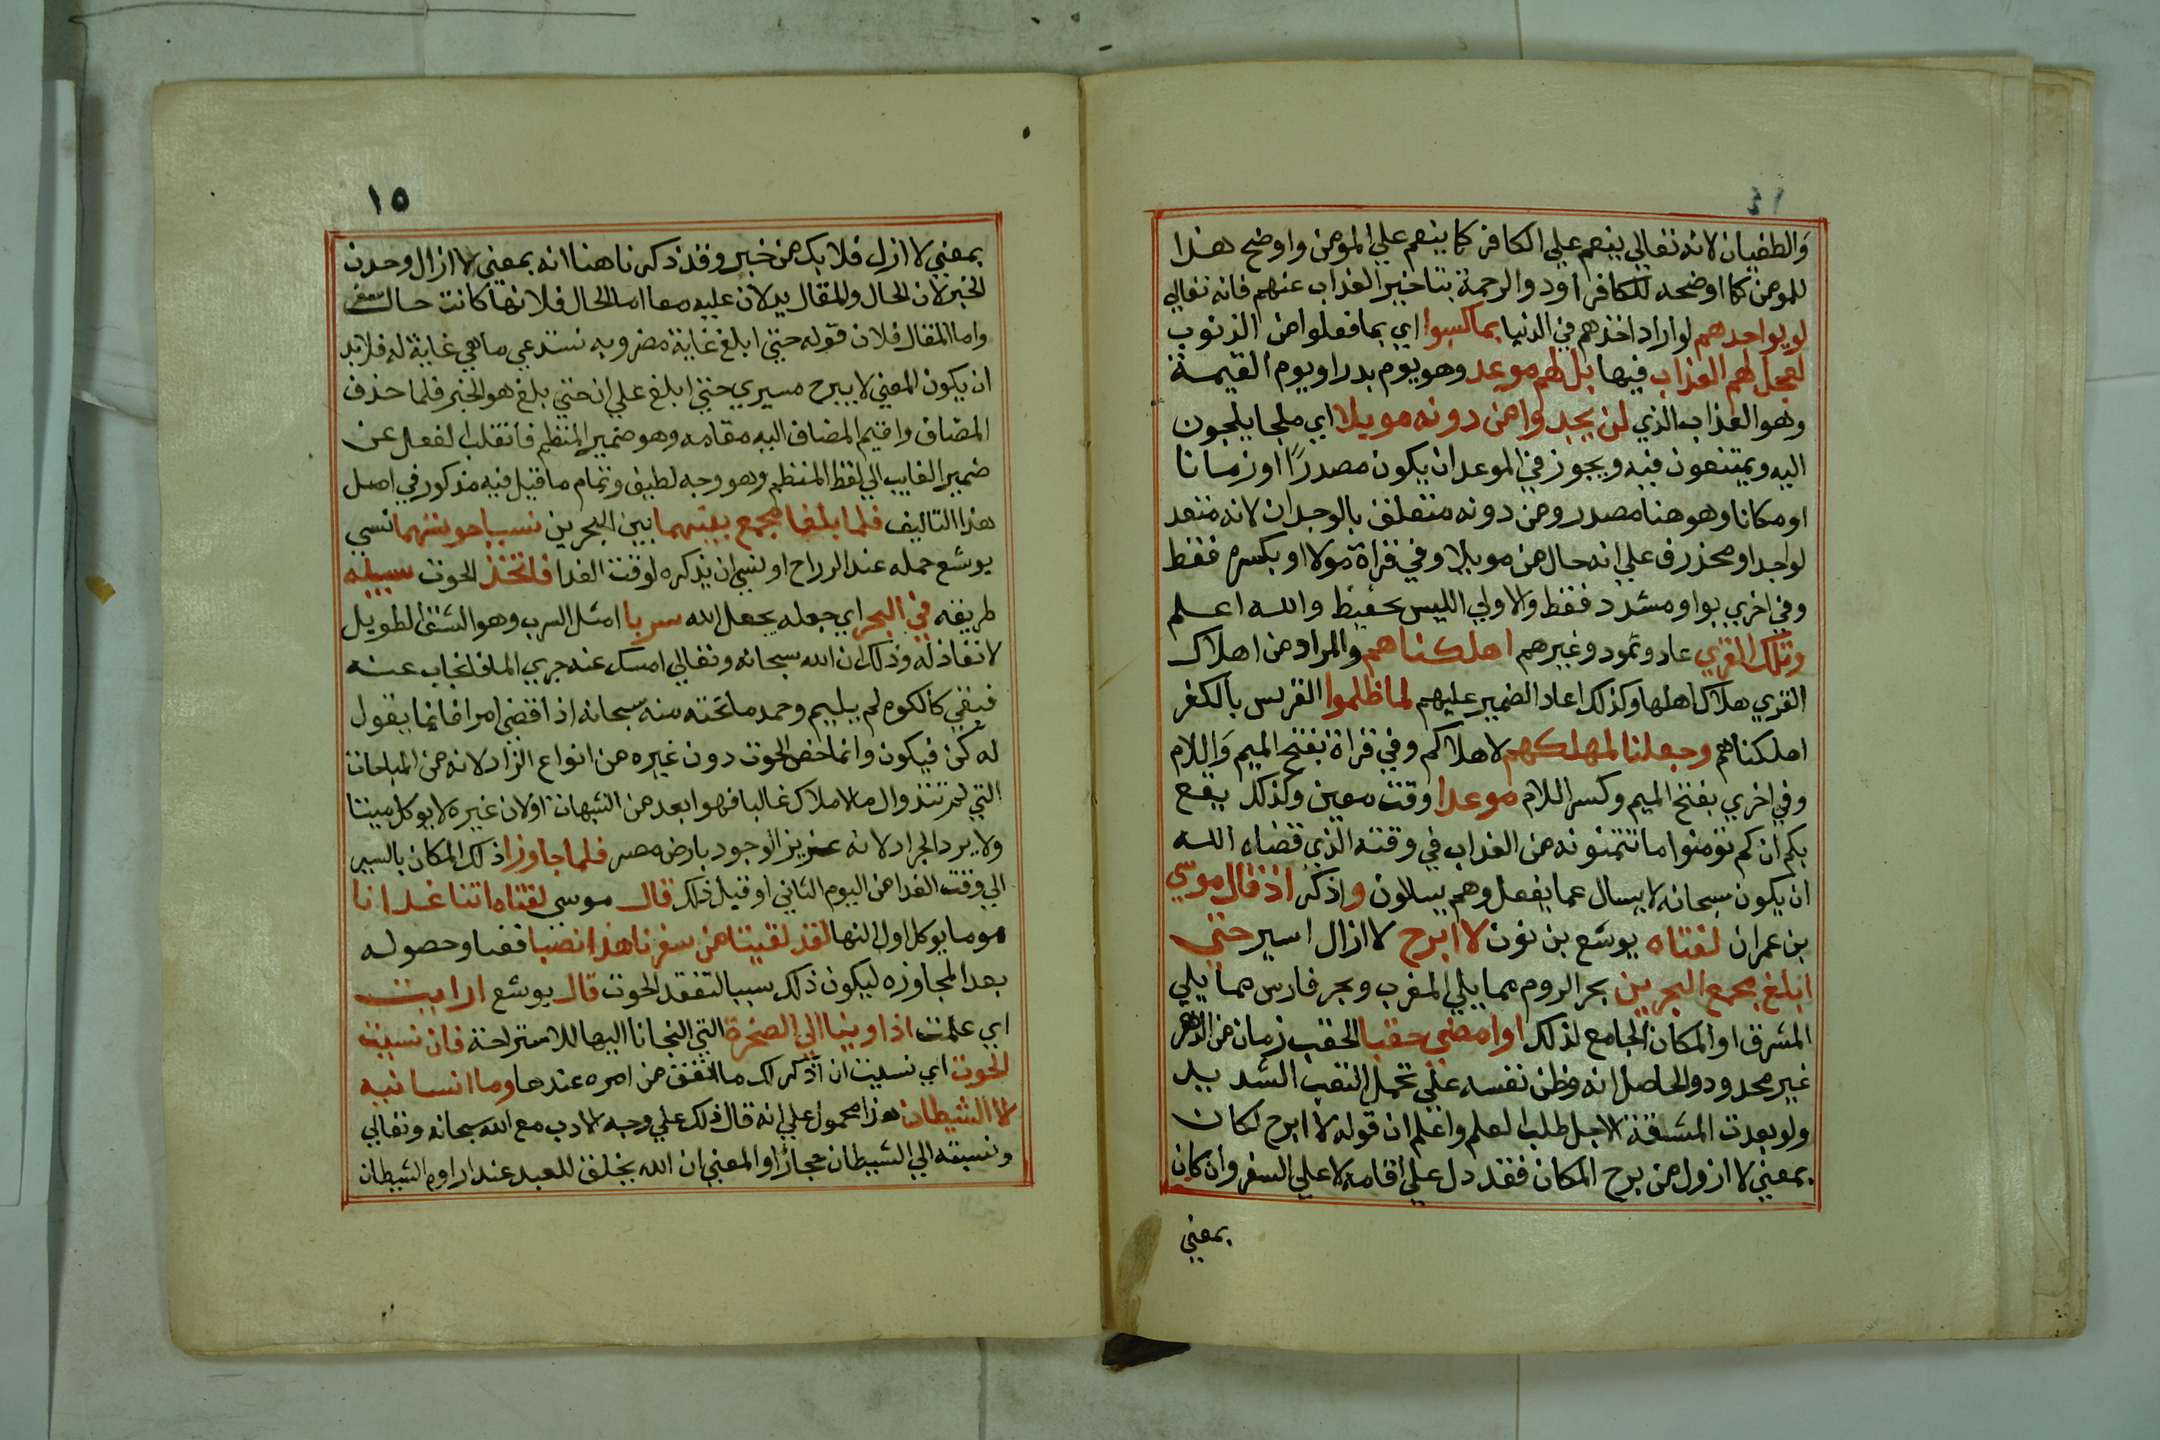 ١٤
والطغيان لانه تعالي ينعم علي الكافر كما ينعم علي المومن واوضح هذا
للمومن كما اوضحه للكافر اود والرحمة بتاخير العذاب عنهم فانه تعالي
لو يواخذهم لو اراد اخذهم في الدنيا بما كسبوا اي بما فعلوا من الذنوب
لعجل لهم العذاب فيها بل لهم موعد وهو يوم بدر او يوم القيمة
وهو العذاب الذي لن يجدوا من دونه مويلا اي ملجا يلجون
اليه ويمتنعون فيه ويجوز في الموعد ان يكون مصدرًا او زمانا
او مكانا وهو هنا مصدر ومن دونه متعلق بالوجدان لانه متعد
لواحد او محذوف علي انه حال من مويلا وفي قراة مولا او بكسره فقط
وفي اخري بواو مشدد فقط والاولي الليس بحفيظ والله اعلم
وتلك القري عاد وثمود وغيرهم اهلكناهم والمراد من اهلاك
القري هلاك اهلها وكذلك اعاد الضمير عليهم لما ظلموا انفسهم بالكفر
اهلكناهم وجعلنا لمهلكهم لاهلاكهم وفي قراة بفتح الميم واللام
وفي اخري بفتح الميم وكسر اللام موعدا وقت معين وكذلك يقع
بكم ان لم تومنوا ما تتمنونه من العذاب في وقته الذي قضاه الله
ان يكون سبحانه لا يسال عما يفعل وهم يسلون واذكر اذ قال موسي
بن عمران لفتاه يوشع بن نون لا ابرح لا ازال اسير حتي
ابلغ مجمع البحرين بحر الروم مما يلي المغرب وبحر فارس مما يلي
المشرق او المكان الجامع لذلك او امضي حقبا الحقب زمان من الدهر
غير محدود والحاصل انه وطن نفسه علي تحمل التعب الشديد
ولو بعدت المشقة لاجل طلب العلم واعلم ان قوله لا ابرح لكان
بمعني لا ازول من برح المكان فقد دل علي اقامه لا علي السفر وان كان
بمعني
١٥
بمعني لا ازل فلا بد من خبر وقد ذكرنا هنا انه بمعني لا ازال وحذف
الخبر لان الحال والمقال يدلان عليه معا اما الحال فلانها كانت حال سفر
واما المقال فلان قوله حتي ابلغ غاية مضروبه تستدعي ماهي غاية له فلا بد
ان يكون المعني لا يبرح مسيري حتي ابلغ علي ان حتي بلغ هو الخبر فلما حذف
المضاف واقيم المضاف اليه مقامه وهو ضمير المتكلم فانقلب الفعل عن
ضمير الغايب الي لفظ المتكلم وهو وجه لطيف وتمام ما قيل فيه مذكور في اصل
هذا التاليف فلما بلغا مجمع بينهما بين البحرين نسيا حوتهما نسي
يوشع حمله عند الرواح او نسي ان يذكره لوقت الغدا فاتخذ الحوت سبيله
طريقه في البحر اي جعله بجعل الله سربا امثل السرب وهو الشق الطويل
لا نفاذ له وذلك ان الله سبحانه وتعالي امسك عنه جري الما فانجاب عنه
فبقي كالكوه لم يليم وجمد ما تحته منه سبحانه اذا قضي امرا فانما يقول
له كن فيكون وانما خص الحوت دون غيره من انواع الزاد لانه من المباحات
التي لم تتذوال مالاملاك غالبا فهو ابعد من الشبهات اولان غيره لا يوكل ميتا
ولا يرد الجراد لانه عزيز الوجود بارض مصر فلما جاوزا ذلك المكان بالسير
الي وقت الغدا من اليوم الثاني او قبل ذلك قال موسي لفتاه اتنا غدانا
هو ما يوكل اول النهار لقد لقينا من سفرنا هذا نصبا تعبا وحصوله
بعد المجاوزه ليكون ذلك سببا لتفقد الحوت قال يوشع ارايت
اي علمت اذ اوينا الي الصخرة التي التجانا اليها للاستراحة فاني نسيت
الحوت اي نسيت ان اذكر لك ما اتفق من امره عندها وما انسانيه
الا الشيطان هذا محمول علي انه قال ذلك علي وجه الادب مع الله سبحانه وتعالي
ونسبته الي الشيطان مجازا او المعني ان الله يخلق للعبد عند اراده الشيطان